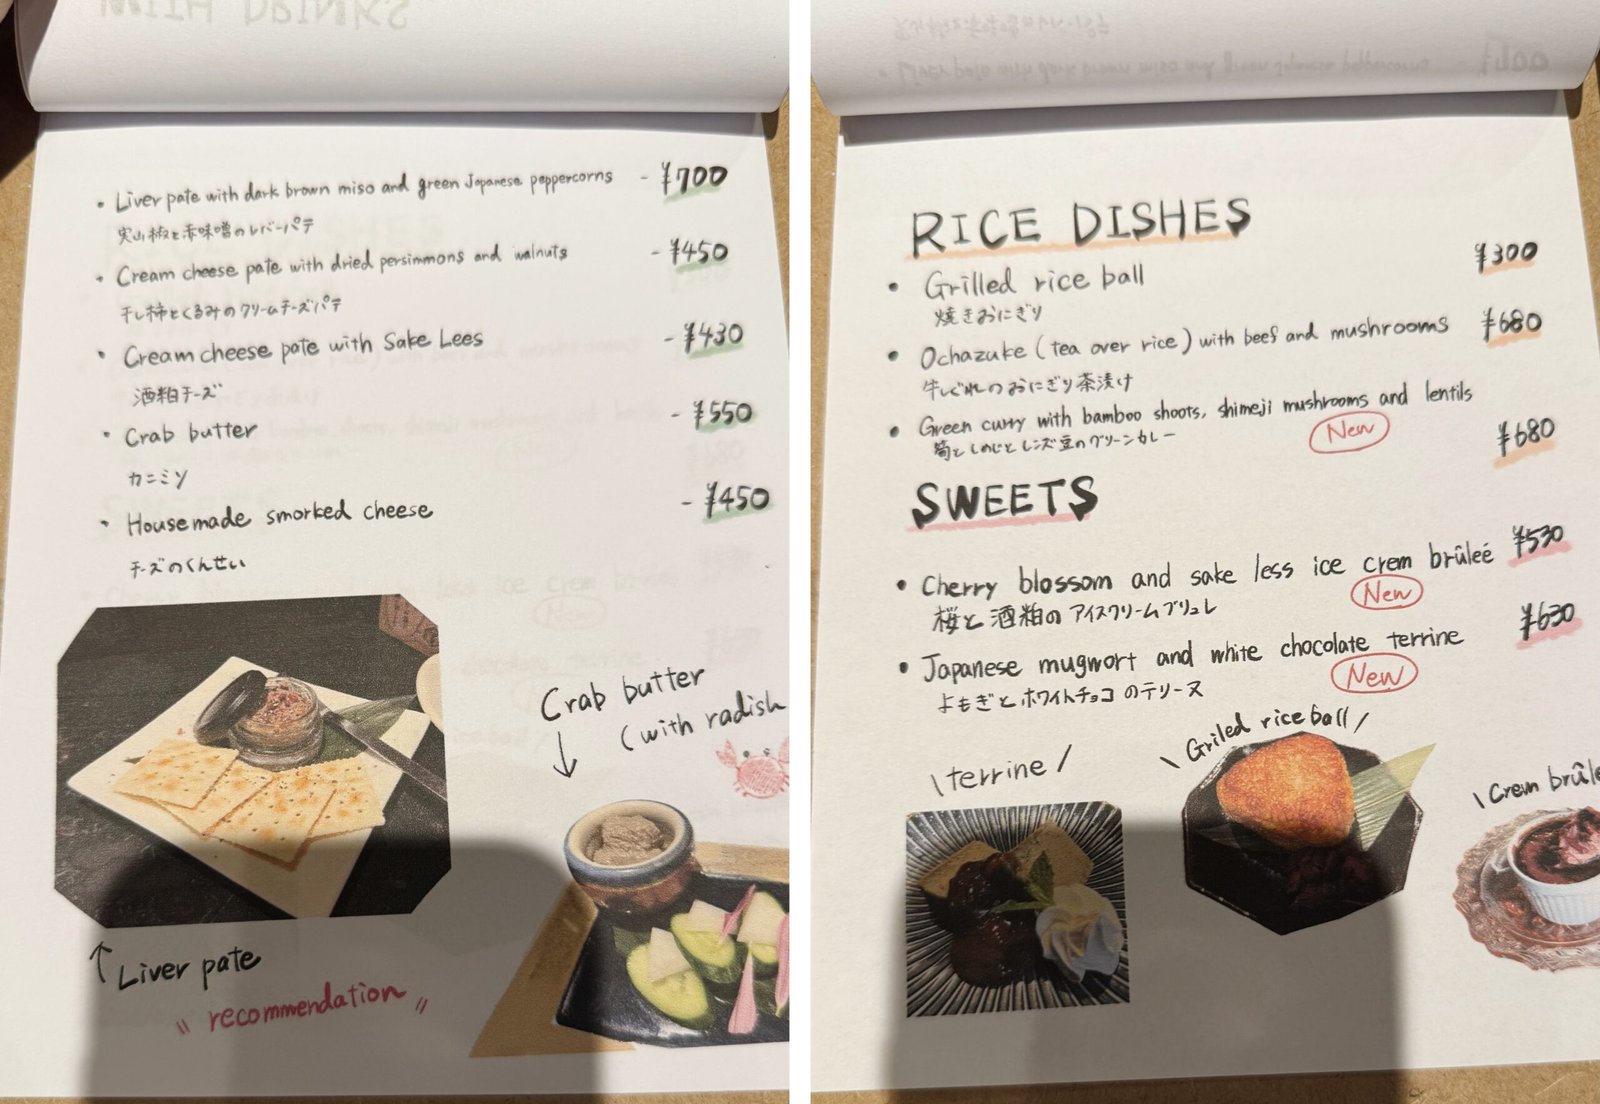 • Liver pate with dark brown miso and green Japanese peppercorns - ¥700
実山椒と赤味噌のレバーパテ
• Cream cheese pate with dried persimmons and walnuts - ¥450
干し柿とくるみのクリームチーズパテ
• Cream cheese pate with Sake Lees - ¥430
酒粕チーズ
• Crab butter - ¥550
カニミソ
• Housemade smorked cheese - ¥450
チーズのくんせい
Crab butter
(with radish
↓
↑ Liver pate
" recommendation "
RICE DISHES
• Grilled rice ball ¥300
焼きおにぎり
• Ochazuke (tea over rice) with beef and mushrooms ¥680
牛しぐれのおにぎり茶漬け
• Green curry with bamboo shoots, shimeji mushrooms and lentils
筍としめじとレンズ豆のグリーンカレー New ¥680
SWEETS
• Cherry blossom and sake less ice crem brûleé ¥530
桜と酒粕のアイスクリームブリュレ New
• Japanese mugwort and white chocolate terrine ¥630
よもぎとホワイトチョコのテリーヌ New
\ terrine /
\ Griled rice ball /
\ Crem brûle